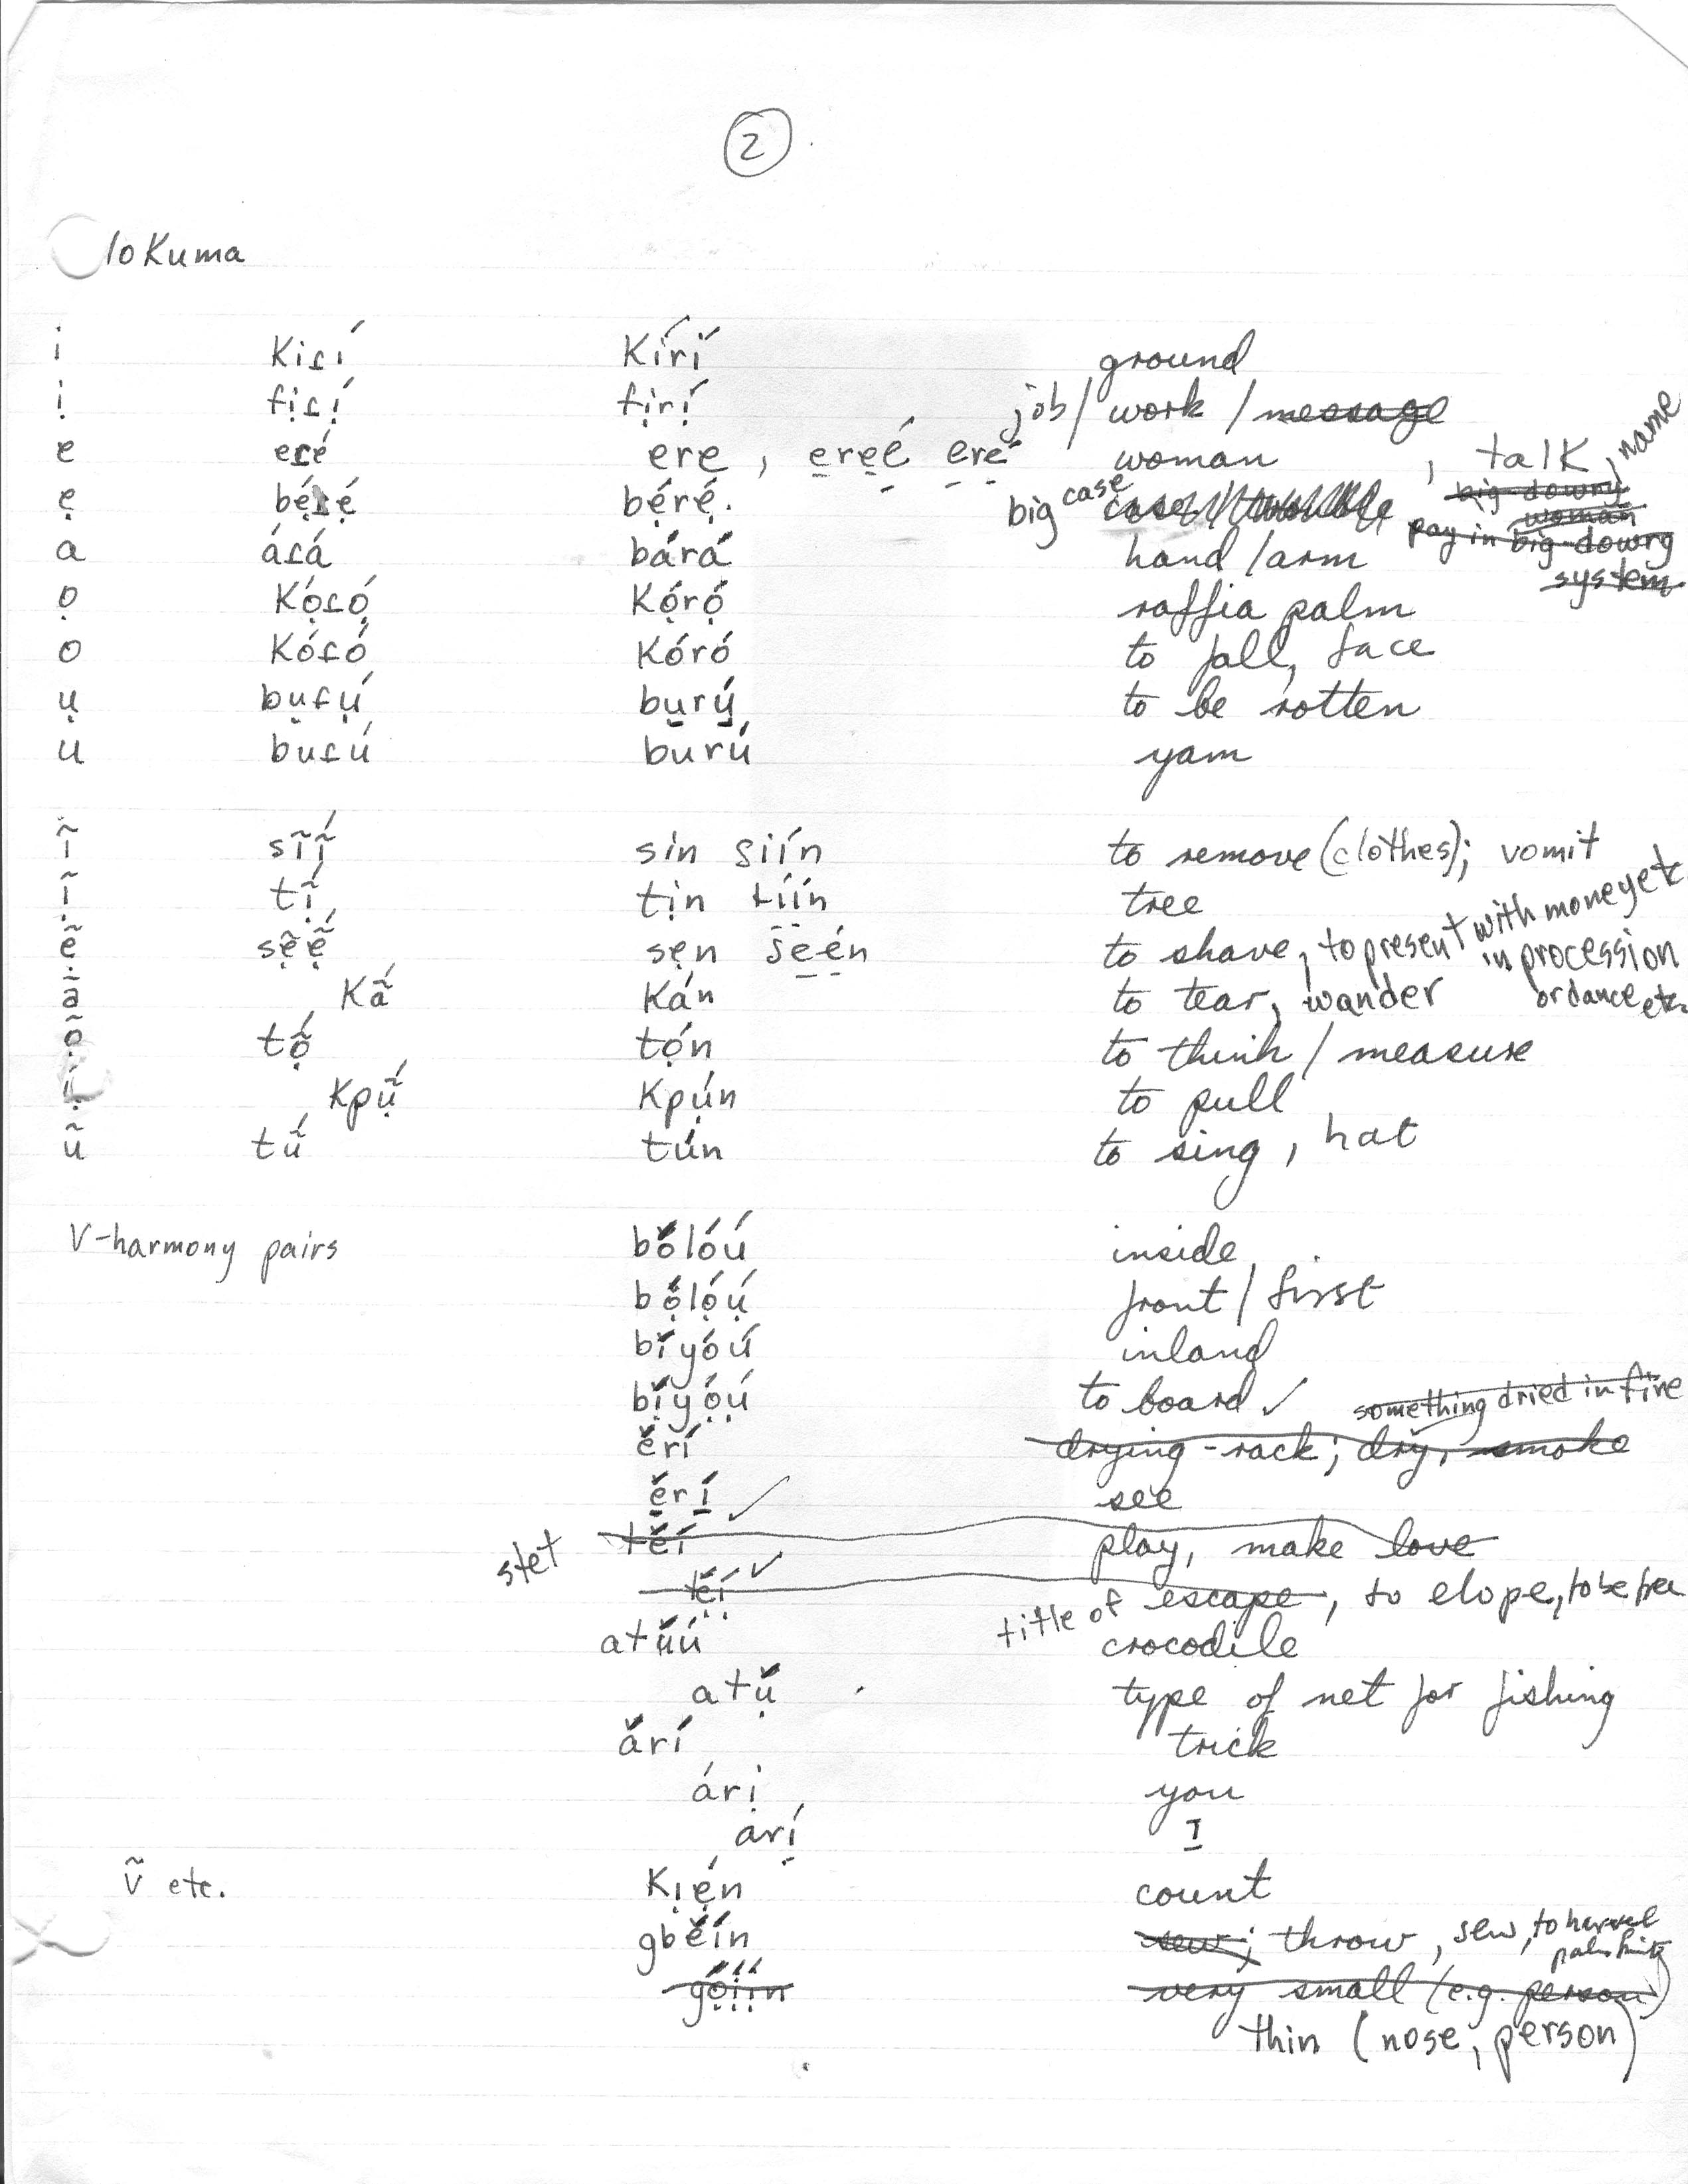 2
Kolokuma
i kiɾí kírí ground
ị fịɾị́ fịrị́ job/ work / message
e eɾé ere, ẹrẹ́ẹ́ ẹrẹ́ woman, talk, name
ẹ bẹ́ɾẹ́ bẹ́rẹ́. big case big-dowry
woman
pay in big-dowry
system
a áɾá bárá hand /arm
ọ kọ́ɾọ́ kọ́rọ́ raffia palm
o kóɾó kóró to fall, face
ụ bụɾụ́ bụrụ́ to be rotten
u buɾú burú yam
ĩ sĩĩ́ sin siín to remove (clothes); vomit
ị̃ tị̃́ tịn tị́ị́n tree
ẹ̃ sẹ̃ẹ̃́ sẹn sẹẹ́n to shave, to present with money etc
in procession
or dance etc.
ã kã́ kán to tear, wander
ọ̃ tọ̃́ tọ́n to think / measure
kpụ̃́ kpụ́n to pull
ũ tṹ tún to sing, hat
V-harmony pairs bǒlóú inside
bọ̌lọ́ụ́ front / first
bǐyóú inland
bị̌yọ́ụ́ to board ✓ something dried in fire
ěrí drying-rack; dry, smoke
ẹ̌rị́ ✓ see
stet těí play, make love
tẹ̌ị́ ✓ escape, to elope, to be free
atǔú title of crocodile
atụ̌ type of net for fishing
ǎrí trick
árị you
arị́ I
ṽ etc. kịẹ́n count
gběín sew; throw, sew, to harvest
palm fruits
gọ́ị́ị́n very small (e.g. person)
thin (nose, person)